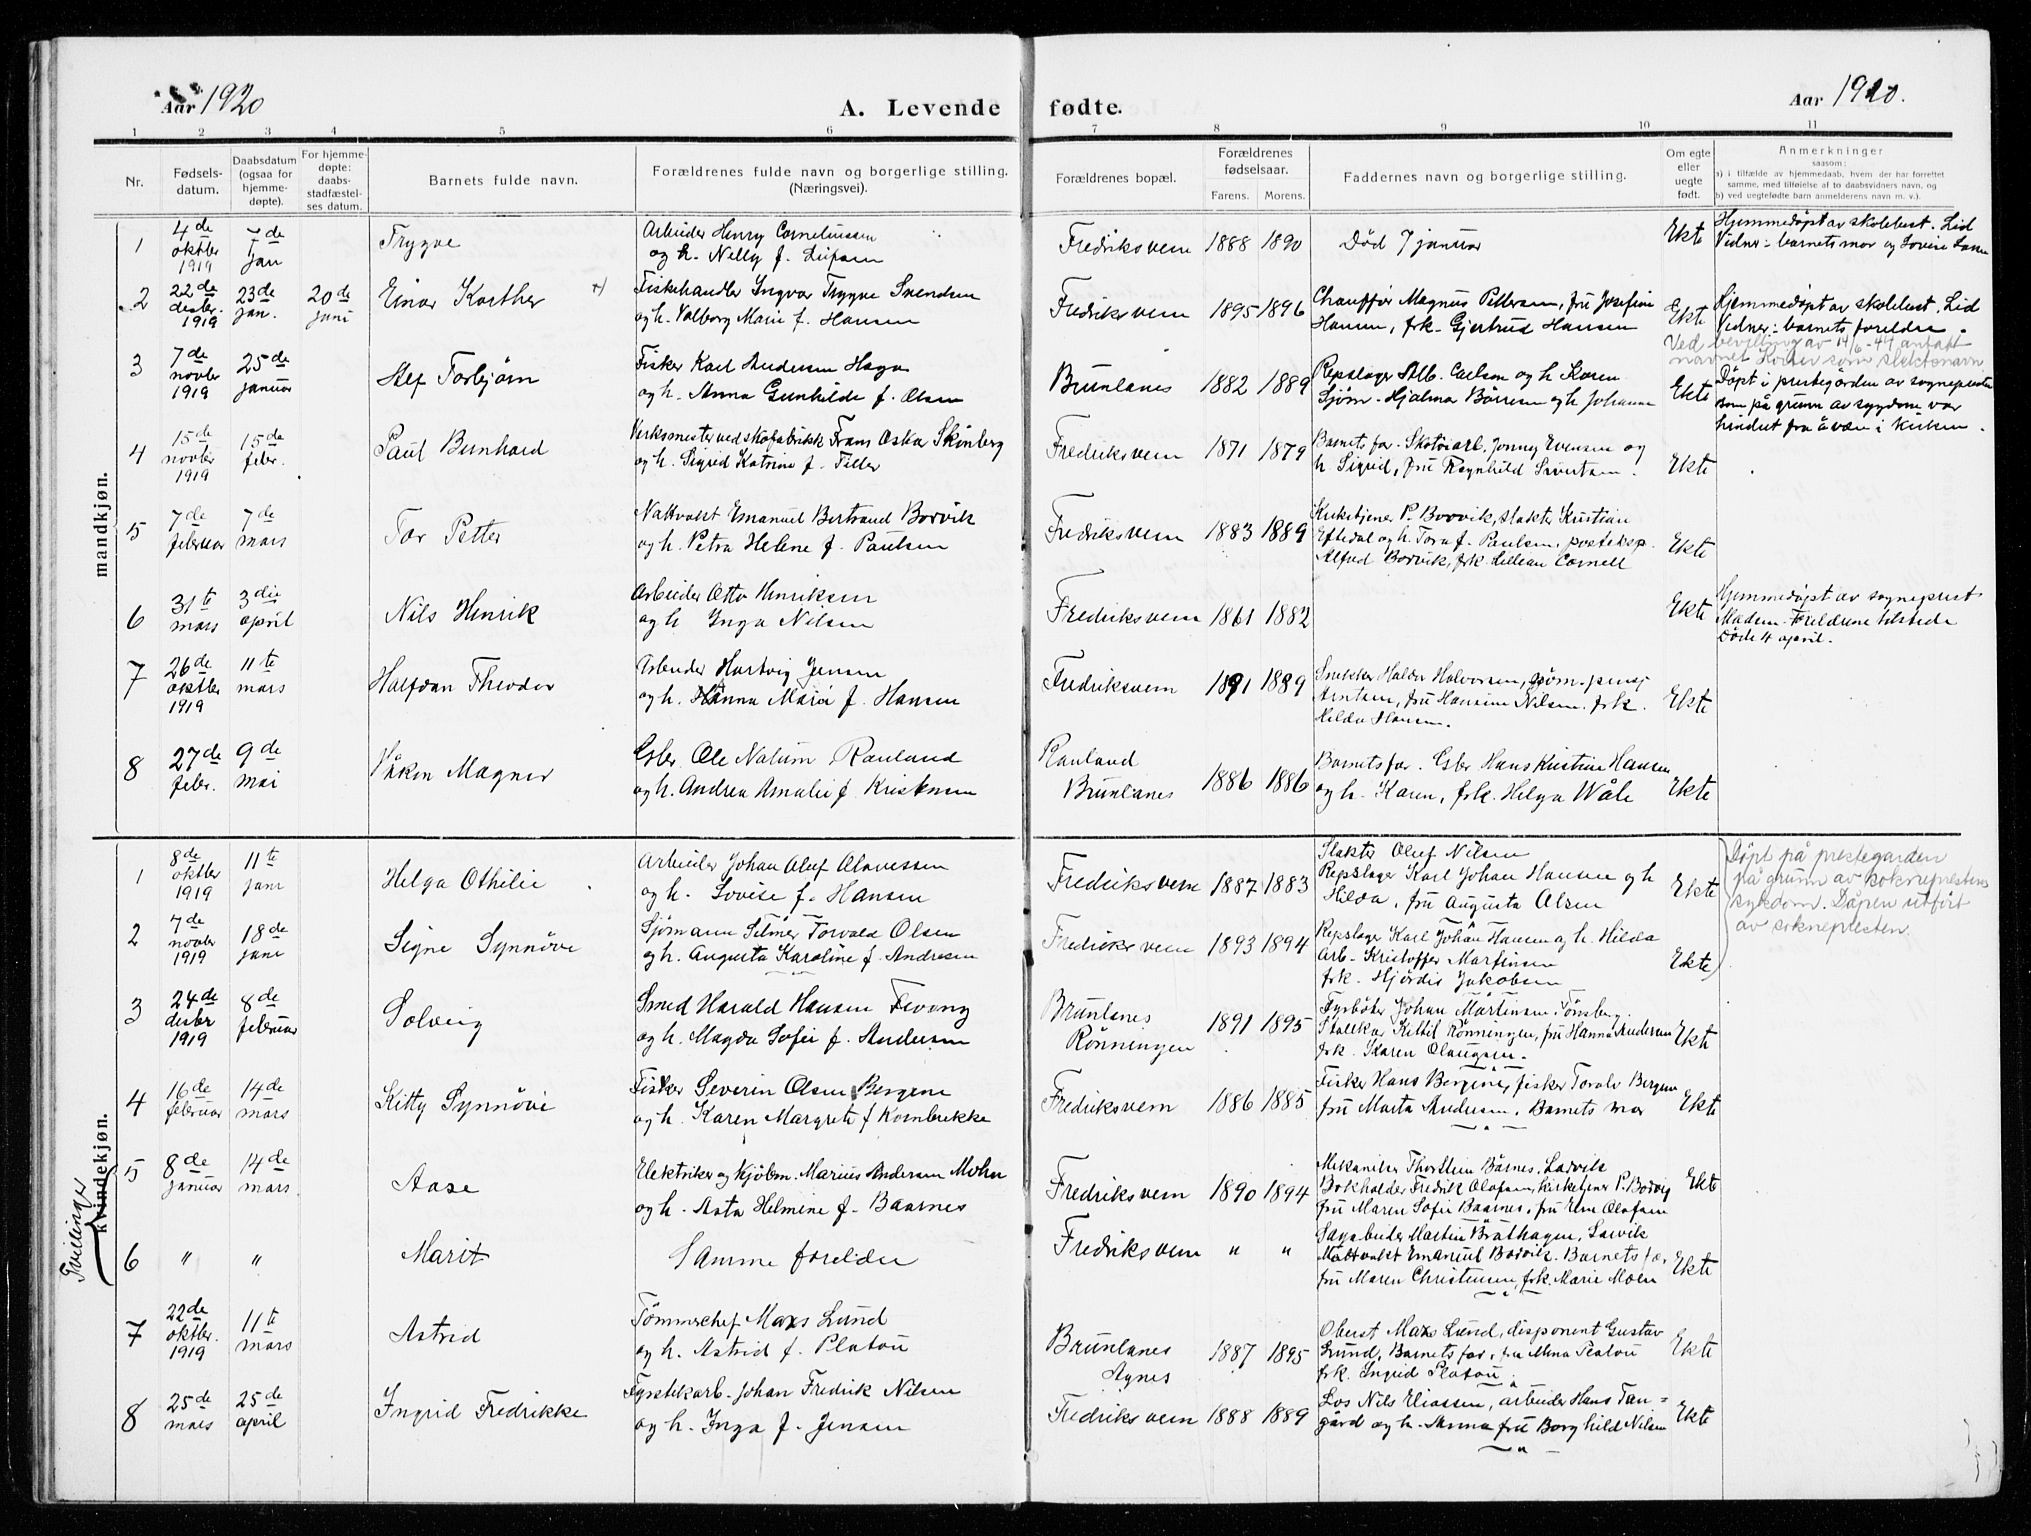 Aar 1920
A. Levende fødte.
Aar 1920.
1 2 3 4 5 6 7 8 9 10 11
Nr.
Fødselsdatum.
Daabsdatum (ogsaa for hjemmedøpte).
For hjemmedøpte: daabsstadfæstelses datum.
Barnets fulde navn.
Forældrenes fulde navn og borgerlige stilling. (Næringsvei).
Forældrenes bopæl.
Forældrenes fødselsaar.
Farens. Morens.
Faddernes navn og borgerlige stilling.
Om egte eller uegte født.
Anmerkninger
saasom:
a) i tilfælde av hjemmedaab, hvem der har forrettet samme, med tilføielse af to daabsvidners navn, og
b) ved uegtefødte barn anmelderens navn m. v.)
mandkjøn.
1 4de oktbr 1919 Jan Trygve Arbeider Henry Corneliussen Fredriksvern 1888 1890 Død 7 januar Ekte Hjemmedøpt av skolebest. Lid
og h. Nelly f. Vidner: barnets mor og Lovise
2 22de desbr. 1919 23de jan. 20de juni Einar Fiskehandler Ingvar Trygve Svendsen Fredriksvern 1895 1896 Chauffør Magnus Pettersen, fru Josefine Ekte Hjemmedøpt av skolebest. Lid
og h. Valborg Marie f. Hansen Hansen, frk. Gjertrud Hansen Vidner: barnets foreldre.
Ved bevilling av 14/6-44 antatt
navnet som slektsnavn
3 7de novbr 1919 25de januar Alf Torbjørn Fisker Karl Andersen Haga Brunlanes 1882 1889 Repslager Alb. Carlson og h Karen Ekte Døpt i prestegården av sognepresten
og h. Anna Gunhilde f. Olsen Sjøm. Hjalmar Børresen og h Johanne som på grunn av sygdom var
hindret fra å være i kirken.
4 15de novbr 1919 15de febr. Paul Bernhard Verksmester ved skofabrikk Frans Oskar Skinberg Fredriksvern 1871 1879 Barnets far. Skotøiarb. Jonny Evensen og Ekte
og h. Sigrid Katrine f. Tiller h. Sigrid, fru Ragnhild Sivertsen.
5 7de februar 7de mars Tor Petter Nattvakt Emanuel Bertrand Borvik Fredriksvern 1883 1889 Kirketjener P. Borvik, slakter Kristian Ekte
og h. Petra Helene f. Paulsen Eftedal og h. Tora f. Paulsen, posteksp.
Alfred Borvik, frk. Lillian Cornell
6 31te mars 3die april Nils Henrik Arbeider Otto Henriksen Fredriksvern 1861 1882 Ekte Hjemmedøpt av sogneprest
og h. Inga Nilsen Madsen. Foreldrene tilstede
Døde 4 april.
7 26de oktbr 1919 11te mars Halfdan Theodor Arbeider Hartvig Jensen Fredriksvern 1891 1889 Snekker Halvorsen, sjøm. Ekte
og h. Hanna Marie f. Hansen Arntsen, fru Hansine Nilsen. frk.
Hilda Hansen.
8 27de febr. 9de mai Håkon Magner Gbr. Ole Natum Rauland Rauland Brunlanes 1886 1886 Barnets far. Gbr Hans Kristian Hansen Ekte
og h. Andrea Amalie f. Kristensen og h. Karen, frk. Helga Wåle
kvindekjøn.
1 8de oktbr 1919 11te janr Helga Othilie Arbeider Johan Oluf Olavessen Fredriksvern 1887 1883 Slakter Oluf Nilsen Ekte Døpt på prestegarden
og h. Lovise f. Hansen Repslager Karl Johan Hansen og h på grunn av sokneprestens
Hilda, fru Augusta Olsen sykdom. Dåpen utført
av soknepresten.
2 7de novbr 1919 18de janr Signe Synnøve Sjømann Selmer Torvald Olsen Fredriksvern 1893 1894 Repslager Karl Johan Hansen og h. Hilda Ekte
og h. Augusta Karoline f. Andresen Arb. Kristoffer Martinsen
frk. Hjørdis Jakobsen
3 24de desbr 1919 8de februar Solveig Smed Harald Hansen Tveong Brunlanes Rønningen 1891 1895 Fyrbøter Johan Martinsen, Tønsberg. Ekte
og h. Magda Sofie f. Andersen Kittil Rønningen, fru Hanna Andersen
frk. Karen Olaugsen.
4 16de februar 14de mars Kitty Synnøve Fisker Severin Olsen Bergene Fredriksvern 1886 1885 Fisker Hans Bergene, fisker Toralv Bergene Ekte
og h. Karen Margrete f Kvinbrekke fru Marta Andersen. Barnets mor
Tvillinger
5 8de januar 14de mars Aase Elektriker og Kjøbm. Marius Andersen Mohn Fredriksvern 1890 1894 Mekaniker Thorstein Bårnes, Larvik Ekte
og h. Asta Helmine f. Baarnes Bokholder Fredrik Olafsen, kirketjener P. Borvig
fru Maren Sofie Baarnes, fru Olafsen
6 " " Marit Samme foreldre Fredriksvern " " Sagarbeider Martin Bråthagen, Larvik Ekte
Nattvakt Emanuel Borvik. Barnets far,
fru Maren Christensen, frk. Marie Moen
7 22de oktbr. 1919 11te mars Astrid Tømmerchef Mads Lund Brunlanes Agnes 1887 1895 Oberst Mads Lund, disponent Gustav Ekte
og h. Astrid f. Platou Lund, Barnets far, fru Mina Platou
frk. Ingrid Platou
8 25de mars 25de april Ingrid Fredrikke Fyrstikarb. Johan Fredrik Nilsen Fredriksvern 1888 1889 Los Nils Eliassen, arbeider Hans Tan= Ekte
og h. Inga f. Jensen gård og h. Anna fru Borghild Nilsen